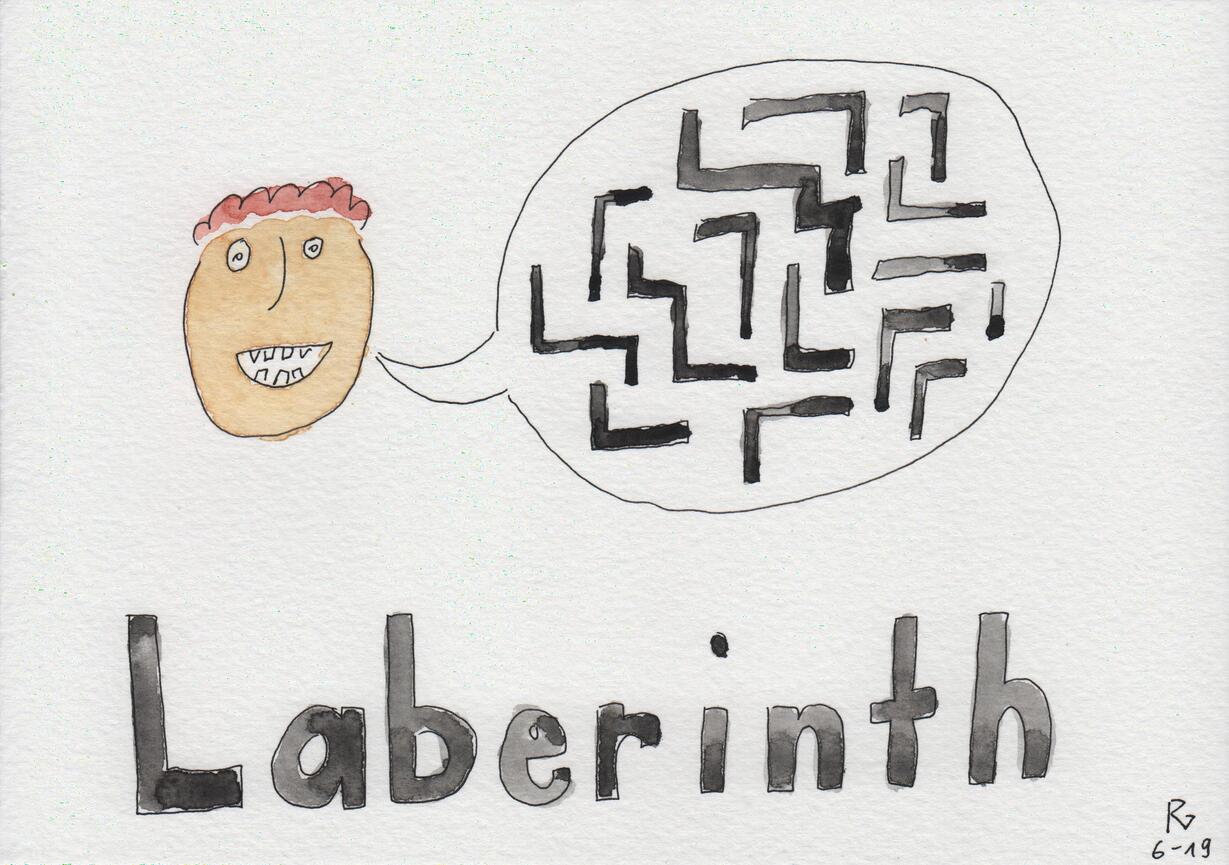 Laberinth
RG
6-19